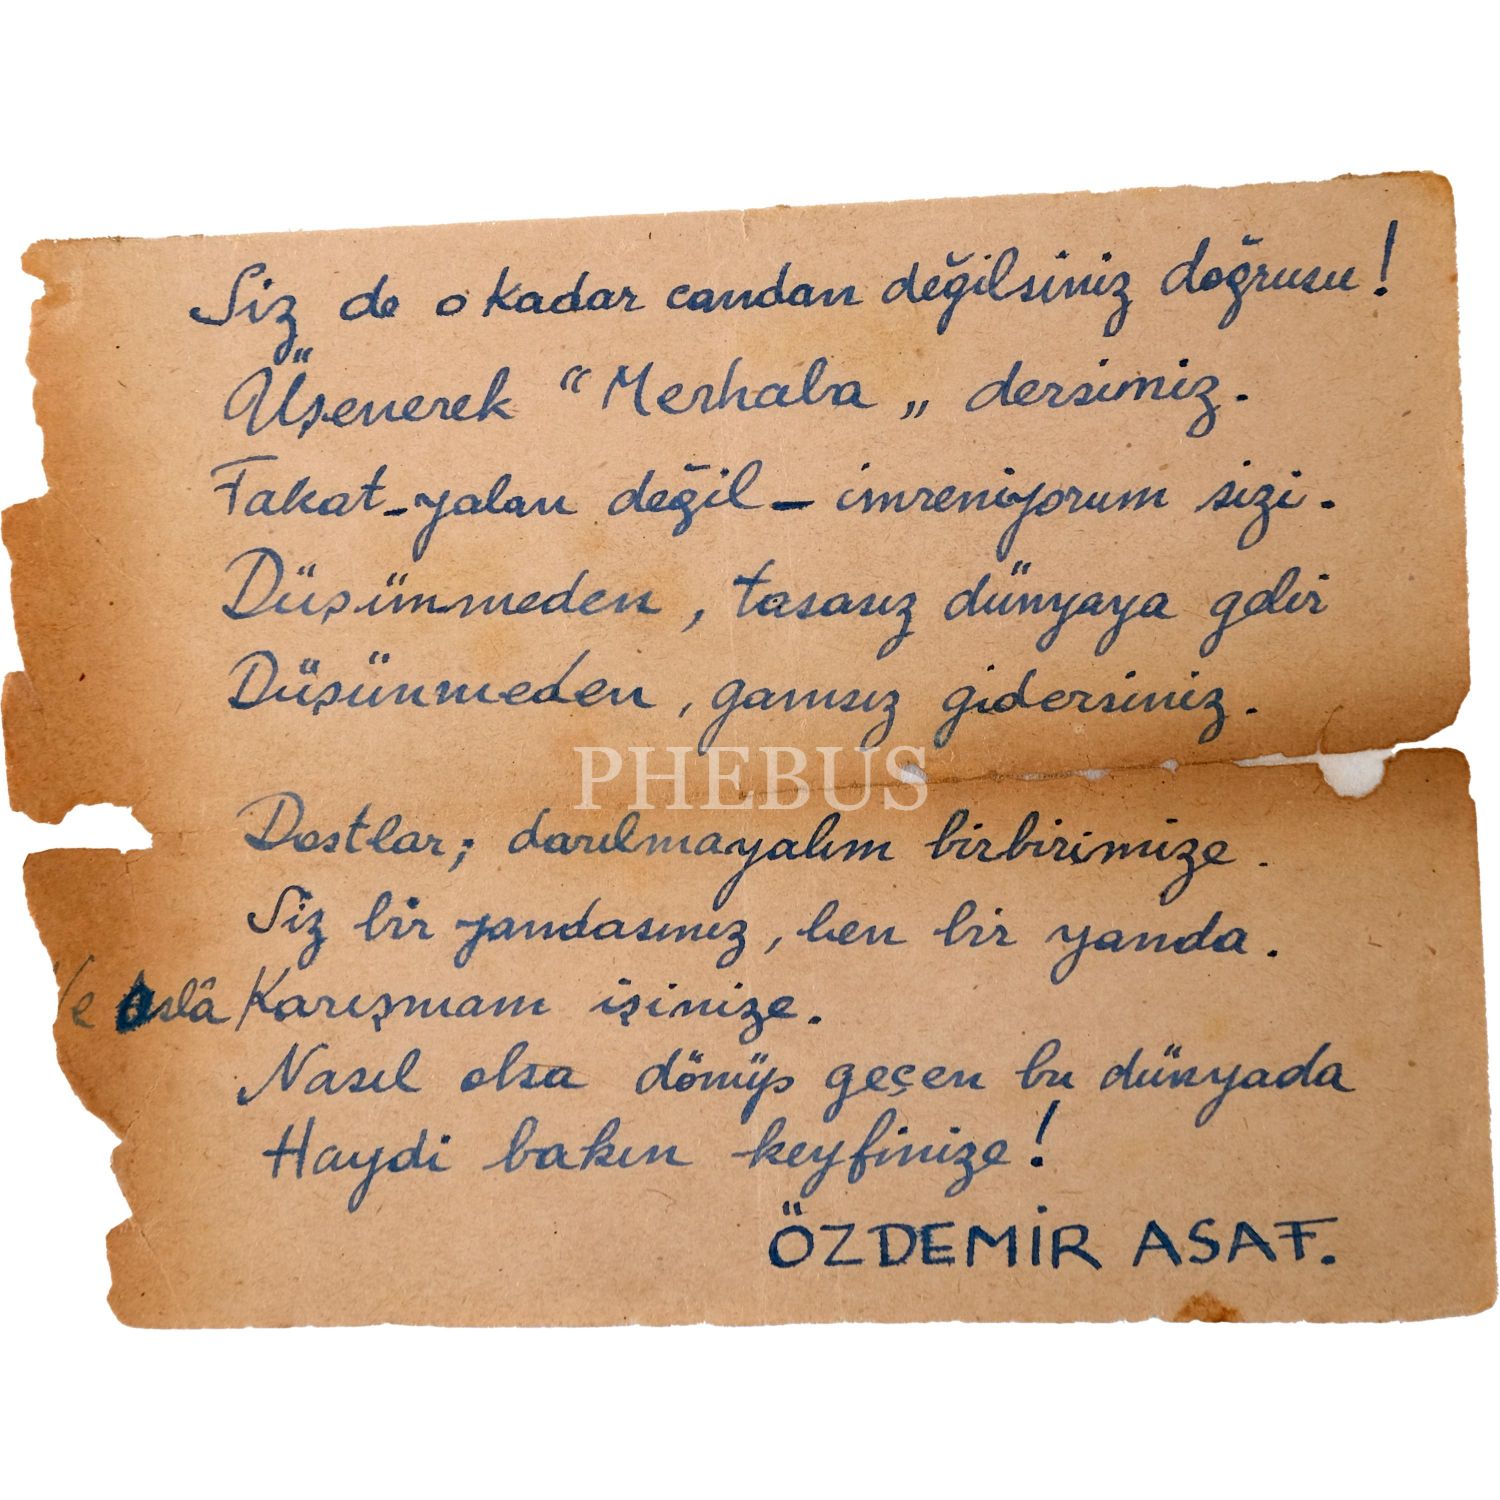 Siz de o kadar candan değilsiniz doğrusu!
Üşenerek "Merhaba„ dersiniz.
Fakat-yalan değil-imreniyorum sizi.
Düşünmeden, tasasız dünyaya gelir
Düşünmeden, gamsız gidersiniz.
PHEBUS
Dostlar; darılmayalım birbirimize.
Siz bir yandasınız, ben bir yanda.
Ve Aslâ Karışmam işinize.
Nasıl olsa dönüp geçen bu dünyada
Haydi bakın keyfinize!
ÖZDEMİR ASAF.